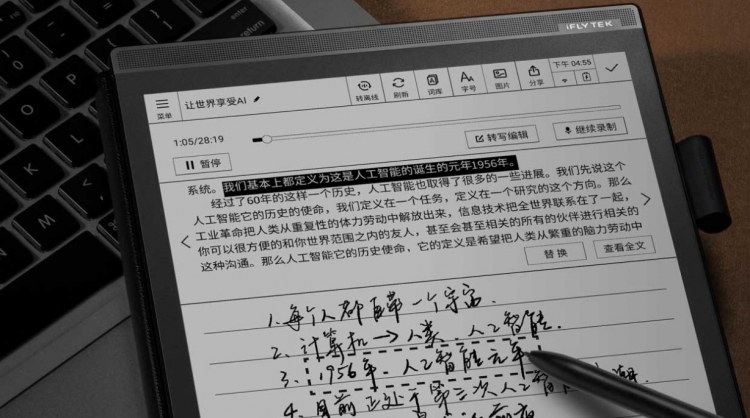 iFLYTEK
return
菜单
让世界享受AI
转离线
刷新
词库
字号
图片
分享
下午 04:55
1:05/28:19
暂停
转写编辑
继续录制
系统。我们基本上都定义为这是人工智能的诞生的元年1956年。
经过了60年的这样一个历史，人工智能也取得了很多的一些进展。我们先说这个
人工智能它的历史的使命，我们定义在一个任务，定义在一个研究的这个方向。那么
工业革命把人类从重复性的体力劳动中解放出来，信息技术把全世界联系在了一起，
你可以很方便的和你世界范围之内的友人，甚至会甚至相关的所有的伙伴进行相关的
这种沟通。那么人工智能它的历史使命，它的定义是希望把人类从繁重的脑力劳动中
替换
查看全文
1、每个人都自带一个宇宙.
2、计算机→人类、人工智能.
3、1956年、人工智能元年
4、目前正处于第三次人工智能 潮.